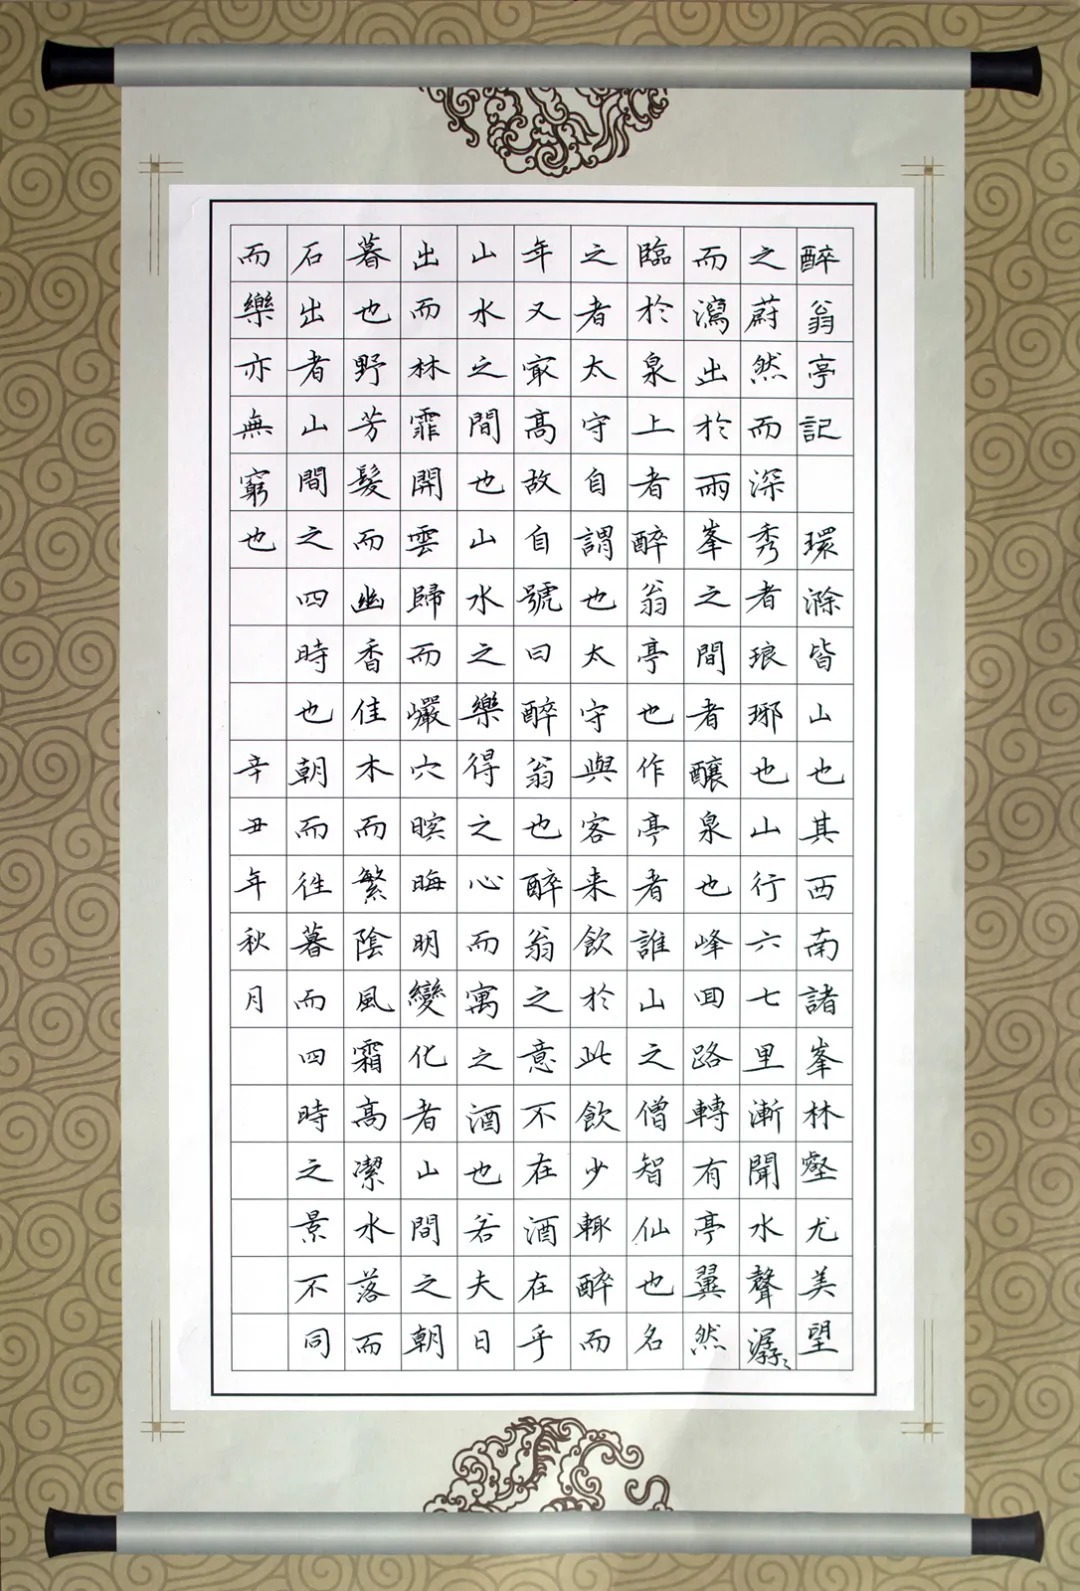 醉翁亭記 環滁皆山也其西南諸峯林壑尤美望
之蔚然而深秀者琅琊也山行六七里漸聞水聲潺〻
而瀉出於兩峯之間者釀泉也峰回路轉有亭翼然
臨於泉上者醉翁亭也作亭者誰山之僧智仙也名
之者太守自謂也太守與客来飲於此飲少輒醉而
年又㝡高故自號曰醉翁也醉翁之意不在酒在乎
山水之間也山水之樂得之心而寓之酒也若夫日
出而林霏開雲歸而巖穴暝晦明變化者山間之朝
暮也野芳髮而幽香佳木而繁陰風霜高潔水落而
石出者山間之四時也朝而往暮而四時之景不同
而樂亦無窮也 辛丑年秋月